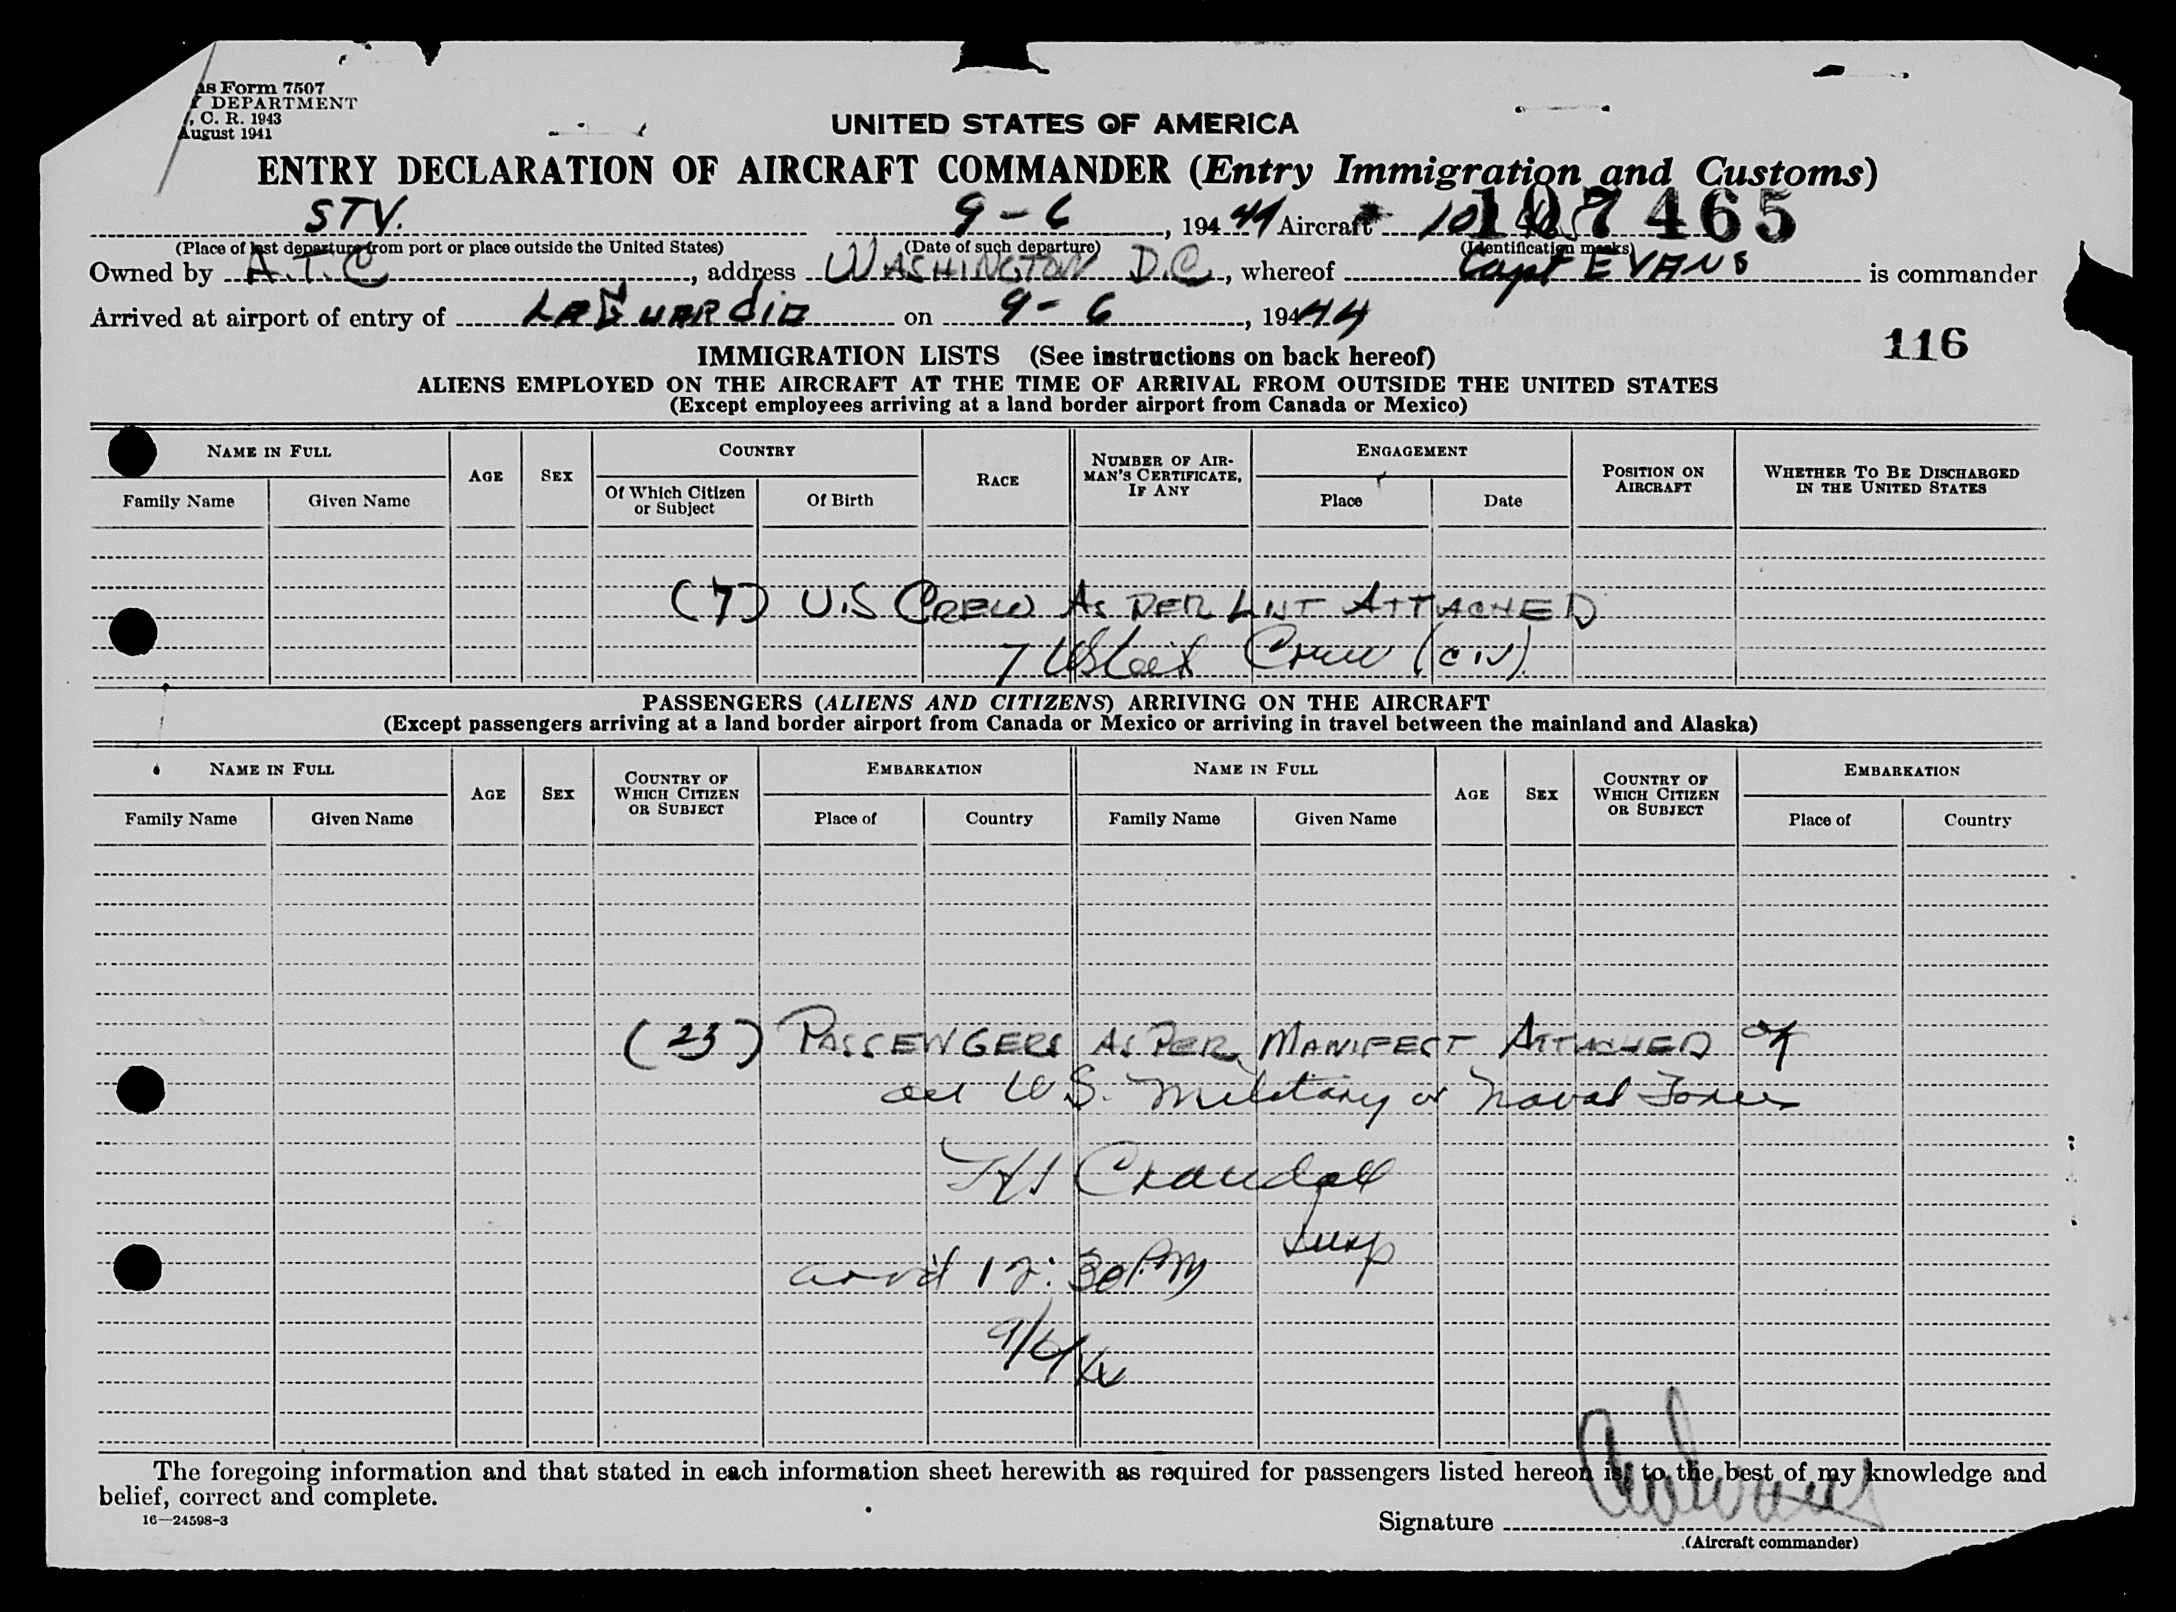 as Form 7507
DEPARTMENT
, C. R. 1943
August 1941
UNITED STATES OF AMERICA
ENTRY DECLARATION OF AIRCRAFT COMMANDER (Entry Immigration and Customs)
STV. 9-6, 194 44 Aircraft 107465
(Place of last departure from port or place outside the United States) (Date of such departure) (Identification marks)
Owned by A.T.C, address WASHINGTON D.C., whereof Capt EVANS is commander
Arrived at airport of entry of LAGUARdia on 9-6, 194 44
116
IMMIGRATION LISTS (See instructions on back hereof)
ALIENS EMPLOYED ON THE AIRCRAFT AT THE TIME OF ARRIVAL FROM OUTSIDE THE UNITED STATES
(Except employees arriving at a land border airport from Canada or Mexico)
NAME IN FULL
Family Name Given Name
AGE
SEX
COUNTRY
Of Which Citizen or Subject Of Birth
RACE
NUMBER OF AIRMAN'S CERTIFICATE, IF ANY
ENGAGEMENT
Place Date
POSITION ON AIRCRAFT
WHETHER TO BE DISCHARGED IN THE UNITED STATES
(7) U.S CREW AS PER LIST ATTACHED
7 US Cit Crew (civ).
PASSENGERS (ALIENS AND CITIZENS) ARRIVING ON THE AIRCRAFT
(Except passengers arriving at a land border airport from Canada or Mexico or arriving in travel between the mainland and Alaska)
NAME IN FULL
Family Name Given Name
AGE
SEX
COUNTRY OF WHICH CITIZEN OR SUBJECT
EMBARKATION
Place of Country
NAME IN FULL
Family Name Given Name
AGE
SEX
COUNTRY OF WHICH CITIZEN OR SUBJECT
EMBARKATION
Place of Country
(23) PASSENGERS AS PER MANIFEST ATTACHED
all U.S. Military or Naval Forces
Crandall
Insp
arrv'd 12:30 PM
9/6/44
The foregoing information and that stated in each information sheet herewith as required for passengers listed hereon is, to the best of my knowledge and
belief, correct and complete.
16—24598-3
Signature
(Aircraft commander)